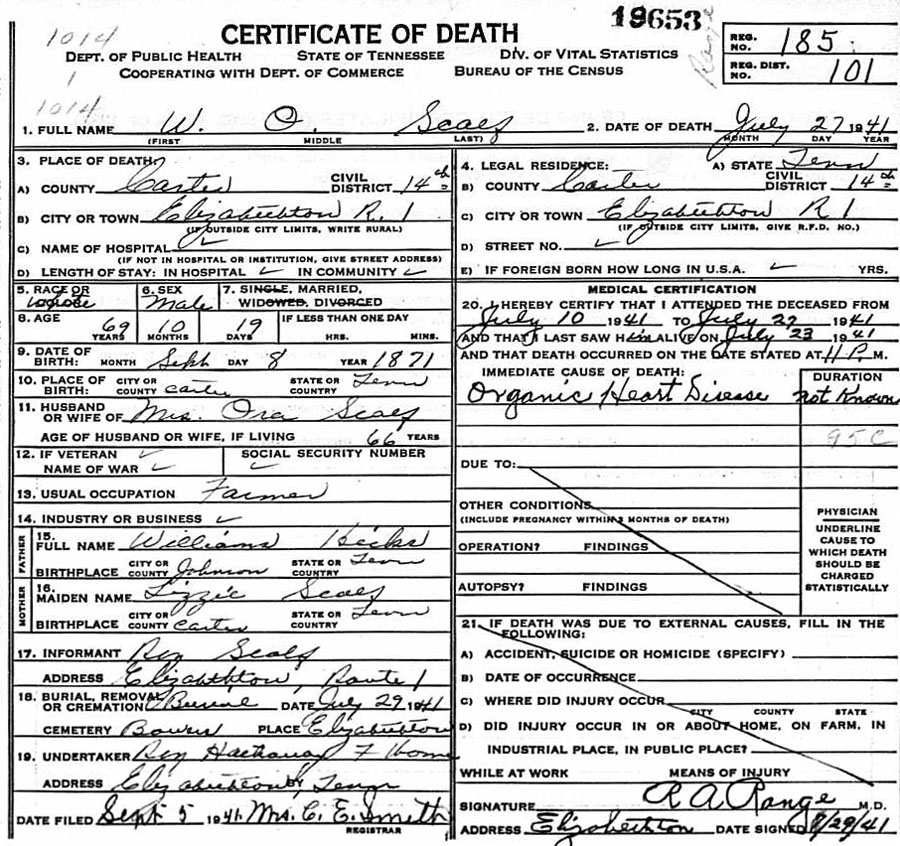 19653
1014
CERTIFICATE OF DEATH
DEPT. OF PUBLIC HEALTH STATE OF TENNESSEE DIV. OF VITAL STATISTICS
COOPERATING WITH DEPT. OF COMMERCE BUREAU OF THE CENSUS
Range
REG. NO. 185
REG. DIST. NO. 101
1
1014
1. FULL NAME W. O. Scalf 2. DATE OF DEATH July 27 1941
(FIRST) MIDDLE LAST) MONTH DAY YEAR
3. PLACE OF DEATH
A) COUNTY Carter CIVIL DISTRICT 14th
B) CITY OR TOWN Elizabethton R. 1
(IF OUTSIDE CITY LIMITS, WRITE RURAL)
C) NAME OF HOSPITAL
(IF NOT IN HOSPITAL OR INSTITUTION, GIVE STREET ADDRESS)
D) LENGTH OF STAY: IN HOSPITAL ✓ IN COMMUNITY ✓
4. LEGAL RESIDENCE: A) STATE Tenn
B) COUNTY Carter CIVIL DISTRICT 14th
C) CITY OR TOWN Elizabethton R 1
(IF OUTSIDE CITY LIMITS, GIVE R.F.D. NO.)
D) STREET NO. ✓
E) IF FOREIGN BORN HOW LONG IN U.S.A. ✓ YRS.
5. RACE OR 6. SEX Male 7. SINGLE, MARRIED, WIDOWED, DIVORCED
8. AGE 69 YEARS 10 MONTHS 19 DAYS IF LESS THAN ONE DAY HRS. MINS.
9. DATE OF BIRTH: MONTH Sept DAY 8 YEAR 1871
10. PLACE OF BIRTH: CITY OR COUNTY Carter STATE OR COUNTRY Tenn
11. HUSBAND OR WIFE OF Mrs. Ora Scalf
AGE OF HUSBAND OR WIFE, IF LIVING 66 YEARS
12. IF VETERAN NAME OF WAR ✓ SOCIAL SECURITY NUMBER ✓
13. USUAL OCCUPATION Farmer
14. INDUSTRY OR BUSINESS ✓
FATHER
15. FULL NAME Williams Hicks
BIRTHPLACE CITY OR COUNTY Johnson STATE OR COUNTRY Tenn
MOTHER
16. MAIDEN NAME Lizzie Scalf
BIRTHPLACE CITY OR COUNTY Carter STATE OR COUNTRY Tenn
17. INFORMANT Scalf
ADDRESS Elizabethton, Route 1
18. BURIAL, REMOVAL OR CREMATION Buriel DATE July 29 1941
CEMETERY Bowers PLACE Elizabethton
19. UNDERTAKER Hathaway F Home
ADDRESS Elizabethton BY Tenn
DATE FILED Sept 5 1941 Mrs. C. E. Smith
REGISTRAR
MEDICAL CERTIFICATION
20. I HEREBY CERTIFY THAT I ATTENDED THE DECEASED FROM
July 10 1941 TO July 27 1941
AND THAT I LAST SAW Him ALIVE ON July 23 1941
AND THAT DEATH OCCURRED ON THE DATE STATED AT 11 P. M.
IMMEDIATE CAUSE OF DEATH: DURATION
Organic Heart Disease Not Known
95C
DUE TO:
OTHER CONDITIONS
(INCLUDE PREGNANCY WITHIN 3 MONTHS OF DEATH)
OPERATION? FINDINGS
AUTOPSY? FINDINGS
PHYSICIAN
UNDERLINE
CAUSE TO
WHICH DEATH
SHOULD BE
CHARGED
STATISTICALLY
21. IF DEATH WAS DUE TO EXTERNAL CAUSES, FILL IN THE
FOLLOWING:
A) ACCIDENT, SUICIDE OR HOMICIDE (SPECIFY)
B) DATE OF OCCURRENCE
C) WHERE DID INJURY OCCUR
CITY COUNTY STATE
D) DID INJURY OCCUR IN OR ABOUT HOME, ON FARM, IN
INDUSTRIAL PLACE, IN PUBLIC PLACE?
WHILE AT WORK MEANS OF INJURY
SIGNATURE R A Range M.D.
ADDRESS Elizabethton DATE SIGNED 8/29/41